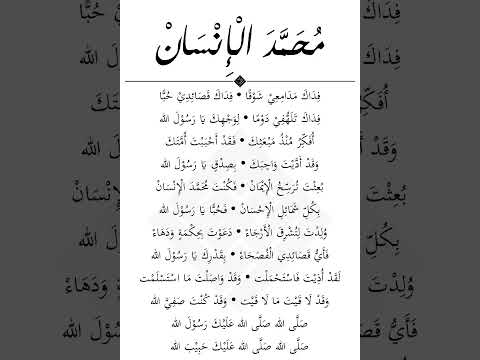 مُحَمَّدَ الْإِنْسَانْ
فِدَاكَ مَدَامِعِيْ شَوْقًا • فِدَاكَ قَصَائِدِيْ حُبًّا
فِدَاكَ تَلَهُّفِيْ دَوْمًا • لِوَجْهِكَ يَا رَسُوْلَ الله
أُفَكِّرُ مُنْذُ مَبْعَثِكَ • فَقَدْ أَحْبَبْتَ أُمَّتَكَ
وَقَدْ أَدَّيْتَ وَاجِبَكَ • بِصِدْقٍ يَا رَسُوْلَ الله
بُعِثْتَ تُرَسِّخُ الْإِيْمَانْ • فَكُنْتَ مُحَمَّدَ الْإِنْسَانْ
بِكُلِّ شَمَائِلِ الْإِحْسَانْ • فَحُبًّا يَا رَسُوْلَ الله
وُلِدْتَ لِتُشْرِقَ الْأَرْجَاءْ • دَعَوْتَ بِحِكْمَةٍ وَدَهَاءْ
فَأَيُّ قَصَائِدِي الْفُصَحَاءْ • بِقَدْرِكَ يَا رَسُوْلَ الله
لَقَدْ أُذِيْتَ فَاسْتَحْمَلْت • وَقَدْ وَاصَلْتَ مَا اسْتَسْلَمْت
وَقَدْ لَا قَيْتَ مَا لَا قَيْت • وَقَدْ كُنْتَ صَفِيَّ الله
صَلَّى الله صَلَّى الله عَلَيْكَ رَسُوْلَ الله
صَلَّى الله صَلَّى الله عَلَيْكَ حَبِيْبَ الله